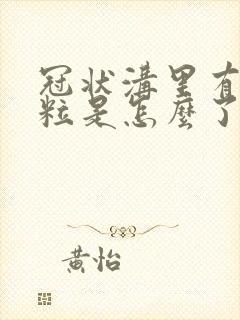 冠状溝里有
粒是怎麼了
黃怡